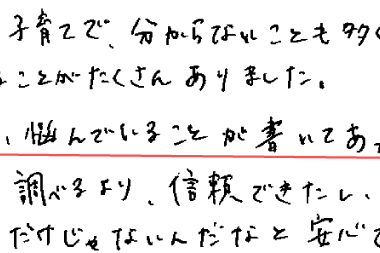 子育てで、分からないことも多く
ことがたくさんありました。
、悩んでいることが書いてあっ
調べるより、信頼できたし、
だけじゃないんだなと安心で